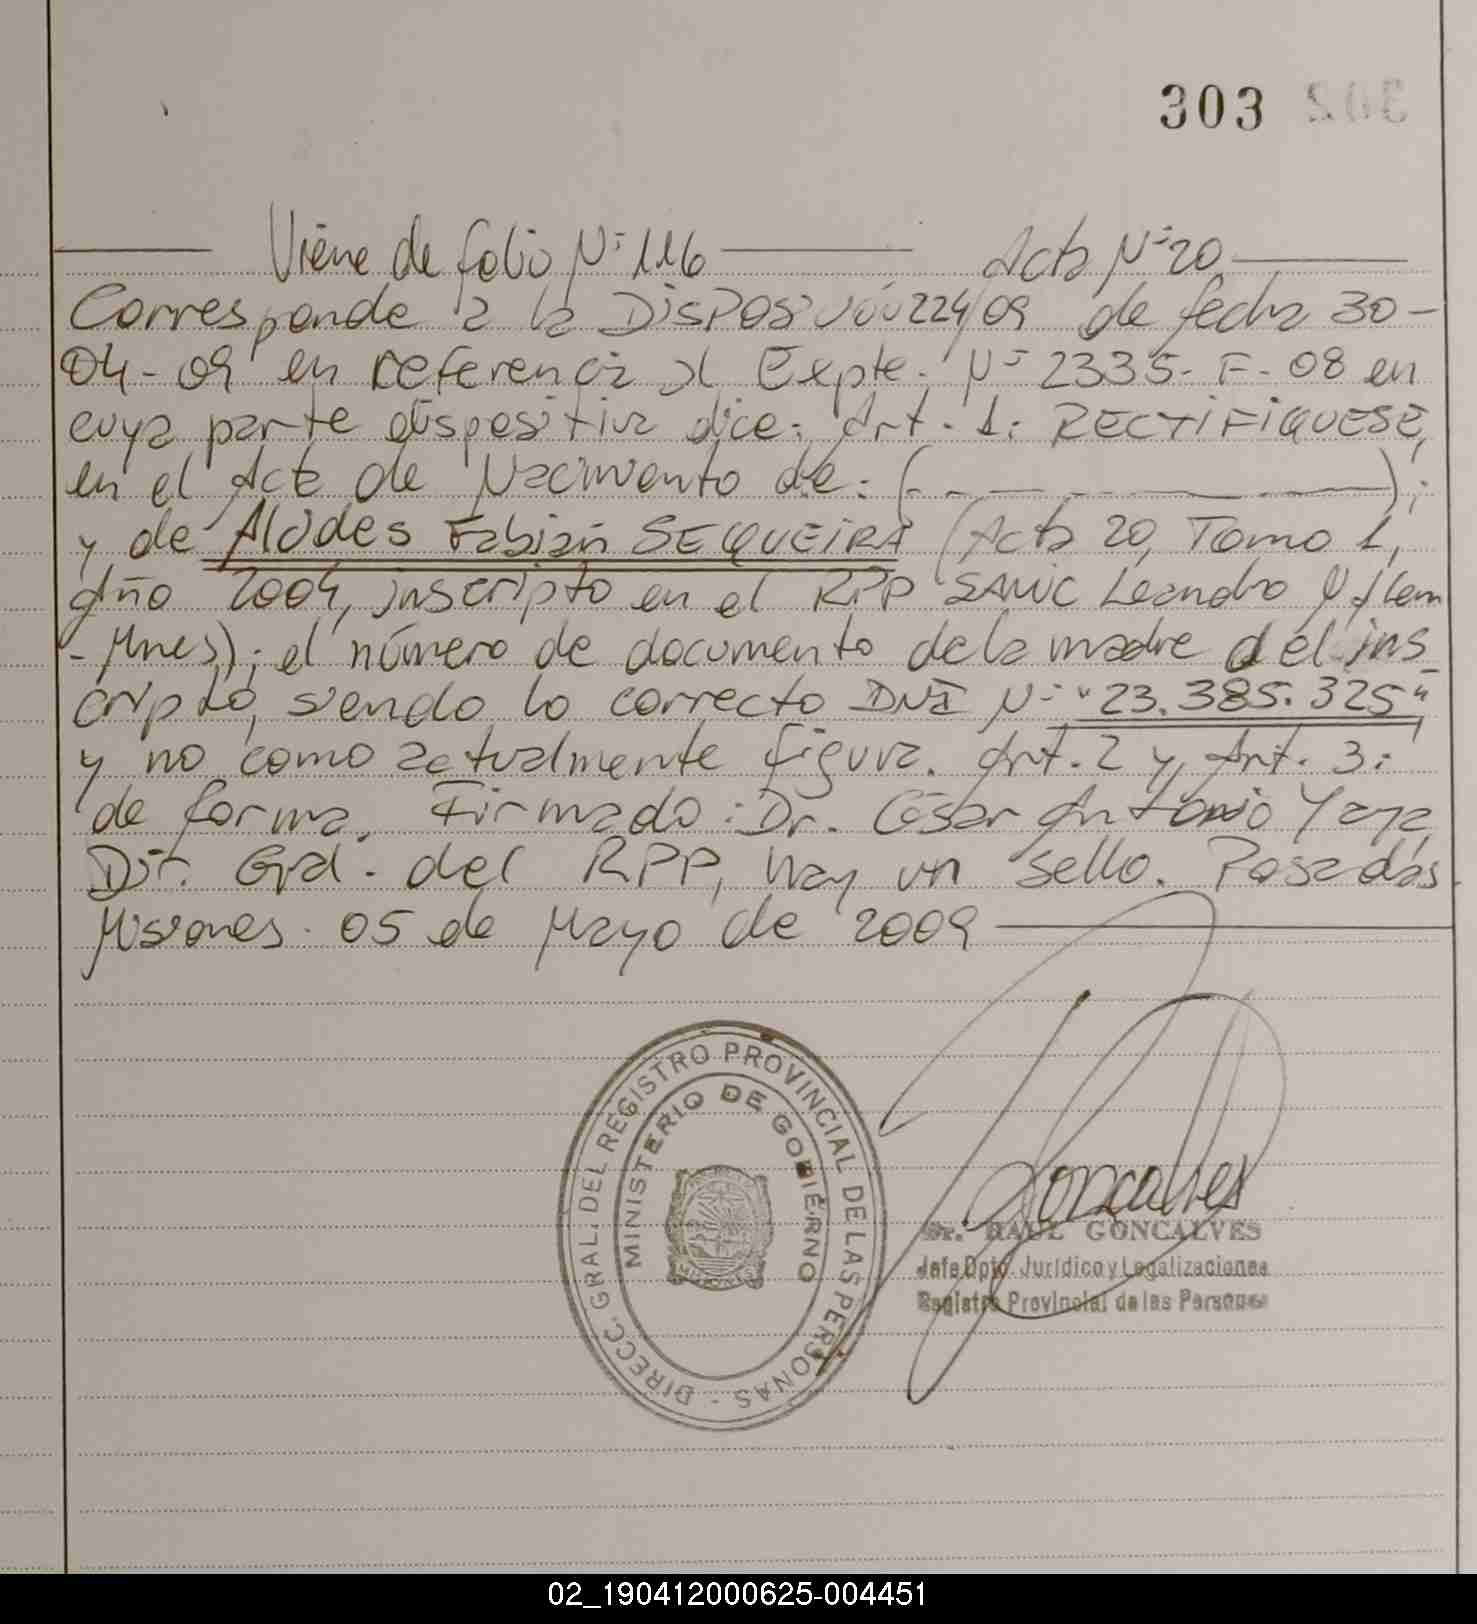 303
Viene de folio Nº 116 Acta Nº 20
Corresponde a la Disposición 224/09 de fecha 30-
04-09 en referencia al Expte. Nº 2335-F-08 en
cuya parte dispositiva dice: Art. 1: RECTIFIQUESE,
en el Acta de Nacimiento de: (- - — — — —);
y de Alcides Fabián SEQUEIRA (Acta 20, Tomo 1,
Año 2004, inscripto en el RPP Leandro N. Alem
- Mnes); el número de documento de la madre del ins
cripto, siendo lo correcto DNI Nº "23.385.325"
y no como actualmente figura. Art. 2 y Art. 3:
de forma. Firmado: Dr. César Antonio Yaya,
Dir. Gral. del RPP, hay un sello. Posadas
Misiones. 05 de Mayo de 2009
DIRECC. GRAL. DEL REGISTRO PROVINCIAL DE LAS PERSONAS -
MINISTERIO DE GOBIERNO
MISIONES
Goncalves
Dr. RAUL GONCALVES
Jefe Dpto. Jurídico y Legalizaciones
Registro Provincial de las Personas
02_190412000625-004451